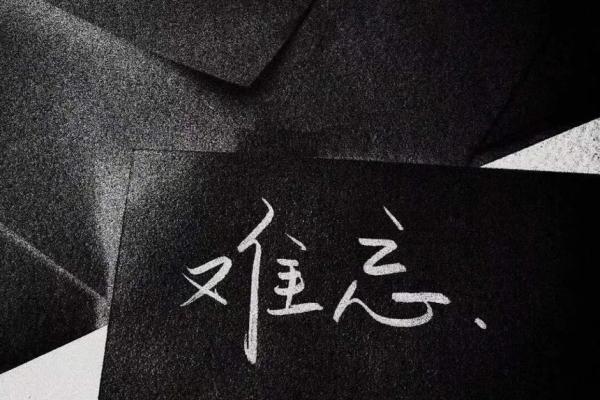 难忘、